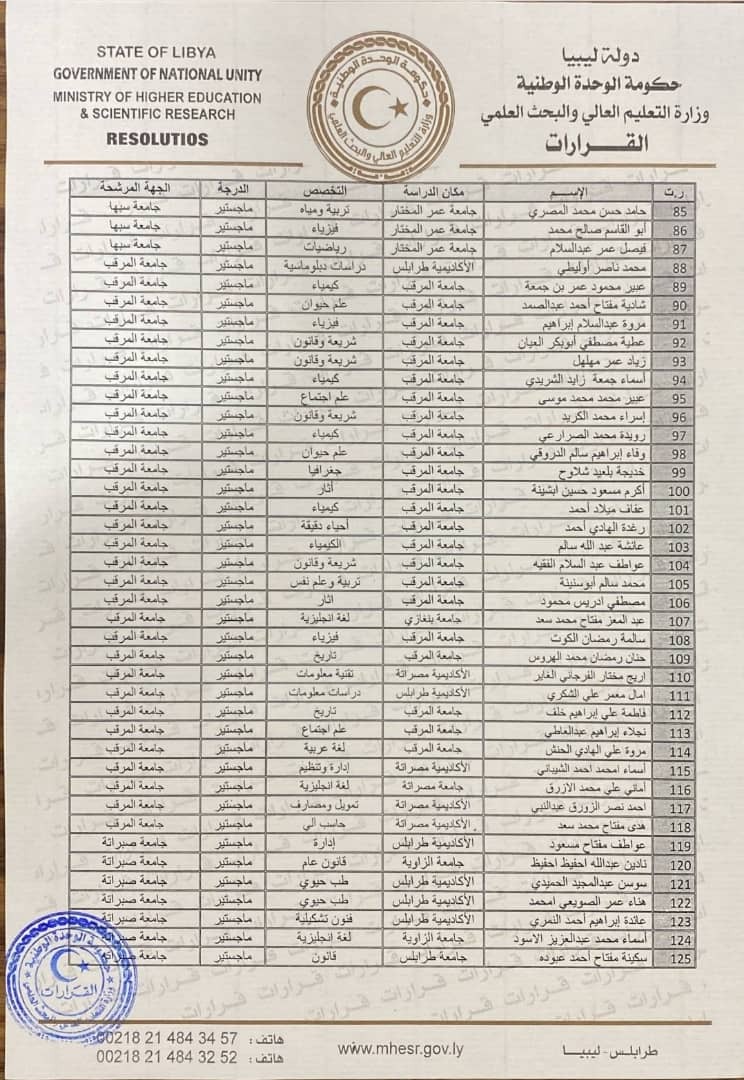 STATE OF LIBYA
GOVERNMENT OF NATIONAL UNITY
MINISTRY OF HIGHER EDUCATION
& SCIENTIFIC RESEARCH
RESOLUTIOS
دولة ليبيا
حكومة الوحدة الوطنية
وزارة التعليم العالي والبحث العلمي
القـــرارات
حكومة الوحدة الوطنية
وزارة التعليم العالي والبحث العلمي
ر.ت الإســـم مكان الدراسة التخصص الدرجة الجهة المرشحة
85 حامد حسن محمد المصري جامعة عمر المختار تربية ومياه ماجستير جامعة سبها
86 أبو القاسم صالح محمد جامعة عمر المختار فيزياء ماجستير جامعة سبها
87 فيصل عمر عبدالسلام جامعة عمر المختار رياضيات ماجستير جامعة سبها
88 محمد ناصر أوليطي الأكاديمية طرابلس دراسات دبلوماسية ماجستير جامعة المرقب
89 عبير محمود عمر بن جمعة جامعة المرقب كيمياء ماجستير جامعة المرقب
90 شادية مفتاح أحمد عبدالصمد جامعة المرقب علم حيوان ماجستير جامعة المرقب
91 مروة عبدالسلام إبراهيم جامعة المرقب فيزياء ماجستير جامعة المرقب
92 عطية مصطفي أبوبكر العيان جامعة المرقب شريعة وقانون ماجستير جامعة المرقب
93 زياد عمر مهلهل جامعة المرقب شريعة وقانون ماجستير جامعة المرقب
94 أسماء جمعة زايد الشريدي جامعة المرقب كيمياء ماجستير جامعة المرقب
95 عبير محمد محمد موسى جامعة المرقب علم اجتماع ماجستير جامعة المرقب
96 إسراء محمد الكريد جامعة المرقب شريعة وقانون ماجستير جامعة المرقب
97 رويدة محمد الصرارعي جامعة المرقب كيمياء ماجستير جامعة المرقب
98 وفاء إبراهيم سالم الدروقي جامعة المرقب علم حيوان ماجستير جامعة المرقب
99 خديجة بلعيد شلاوح جامعة المرقب جغرافيا ماجستير جامعة المرقب
100 أكرم مسعود حسين ابشينة جامعة المرقب أثار ماجستير جامعة المرقب
101 عفاف ميلاد أحمد جامعة المرقب كيمياء ماجستير جامعة المرقب
102 رغدة الهادي أحمد جامعة المرقب أحياء دقيقة ماجستير جامعة المرقب
103 عائشة عبد الله سالم جامعة المرقب الكيمياء ماجستير جامعة المرقب
104 عواطف عبد السلام الفقيه جامعة المرقب شريعة وقانون ماجستير جامعة المرقب
105 محمد سالم أبوسنينة جامعة المرقب تربية وعلم نفس ماجستير جامعة المرقب
106 مصطفي ادريس محمود جامعة المرقب اثار ماجستير جامعة المرقب
107 عبد المعز مفتاح محمد سعد جامعة بنغازي لغة انجليزية ماجستير جامعة المرقب
108 سالمة رمضان الكوت جامعة المرقب فيزياء ماجستير جامعة المرقب
109 حنان رمضان محمد الهروس جامعة المرقب تاريخ ماجستير جامعة المرقب
110 اريج مختار الفرجاني الغاير الأكاديمية مصراتة تقنية معلومات ماجستير جامعة المرقب
111 امال معمر علي الشكري الأكاديمية طرابلس دراسات معلومات ماجستير جامعة المرقب
112 فاطمة علي إبراهيم خلف جامعة المرقب تاريخ ماجستير جامعة المرقب
113 نجلاء إبراهيم عبدالعاطي جامعة المرقب علم اجتماع ماجستير جامعة المرقب
114 مروة علي الهادي الحنش جامعة المرقب لغة عربية ماجستير جامعة المرقب
115 أسماء امحمد احمد الشيباني الأكاديمية مصراتة إدارة وتنظيم ماجستير جامعة المرقب
116 أماني علي محمد الازرق جامعة مصراتة لغة انجليزية ماجستير جامعة المرقب
117 احمد نصر الزورق عبدالنبي الأكاديمية مصراتة تمويل ومصارف ماجستير جامعة المرقب
118 هدى مفتاح محمد سعد الأكاديمية مصراتة حاسب الي ماجستير جامعة المرقب
119 عواطف مفتاح مسعود الأكاديمية طرابلس إدارة ماجستير جامعة صبراتة
120 نادين عبدالله احفيظ احفيظ جامعة الزاوية قانون عام ماجستير جامعة صبراتة
121 سوسن عبدالمجيد الحميدي الأكاديمية طرابلس طب حيوي ماجستير جامعة صبراتة
122 هناء عمر الصويعي امحمد الأكاديمية طرابلس طب حيوي ماجستير جامعة صبراتة
123 عائدة إبراهيم أحمد النمري الأكاديمية طرابلس فنون تشكيلية ماجستير جامعة صبراتة
124 أسماء محمد عبدالعزيز الاسود جامعة الزاوية لغة انجليزية ماجستير جامعة صبراتة
125 سكينة مفتاح أحمد عبوده جامعة طرابلس قانون ماجستير جامعة صبراتة
حكومة الوحدة الوطنية
القرارات
هاتف : 00218 21 484 34 57
هاتف : 00218 21 484 32 52
www.mhesr.gov.ly
طرابلـس - ليبيـا